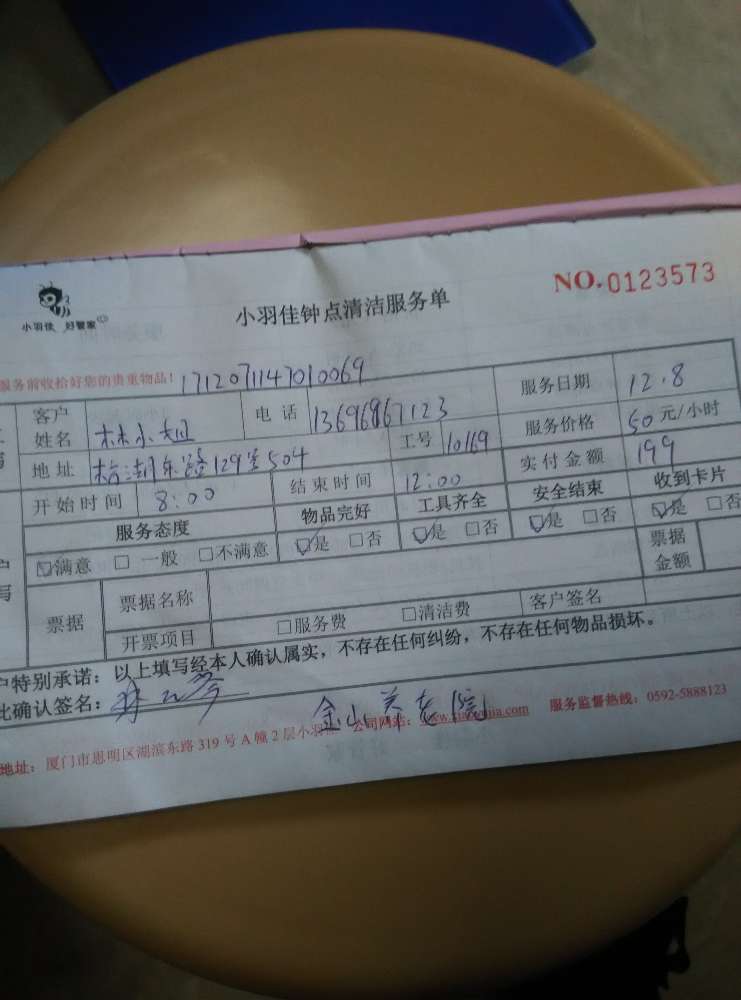 小羽佳 好管家
小羽佳钟点清洁服务单
NO.0123573
服务前收拾好您的贵重物品！1712071147010069
客户姓名 林小姐 电话 13696967123 服务日期 12.8
地址 129 504 工号 10169 服务价格 50元/小时
开始时间 8:00 结束时间 12:00 实付金额 199
服务态度 物品完好 工具齐全 安全结束 收到卡片
☑满意 □一般 □不满意 ☑是 □否 ☑是 □否 ☑是 □否 ☑是 □否
票据 票据名称 票据金额
开票项目 □服务费 □清洁费 客户签名
户特别承诺：以上填写经本人确认属实，不存在任何纠纷，不存在任何物品损坏。
此确认签名：
金山养老院
地址：厦门市思明区湖滨东路319号A幢2层小羽佳 公司网站：www.xiaoyujia.com 服务监督热线：0592-5888123